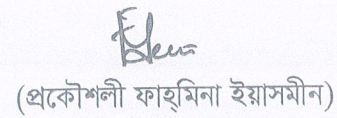 (প্রকৌশলী ফাহ্‌মিনা ইয়াসমীন)